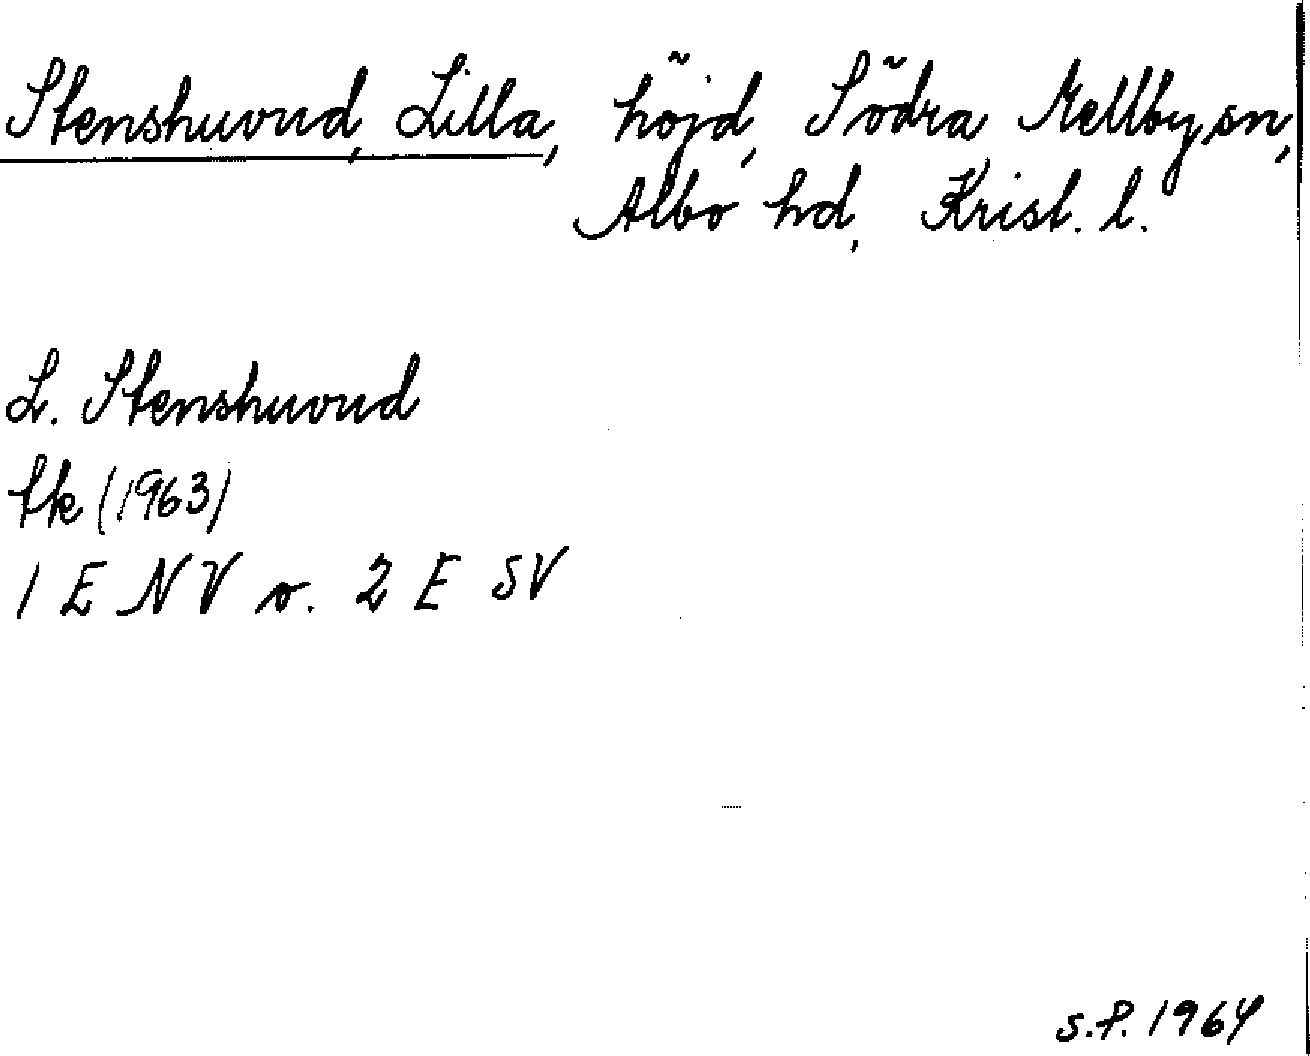 Stenshuvud, Lilla, höjd, Södra Mellby sn,
Albo hd, Krist. l.
L. Stenshuvud
tk (1963)
1 E NV o. 2 E SV
S.P. 1964